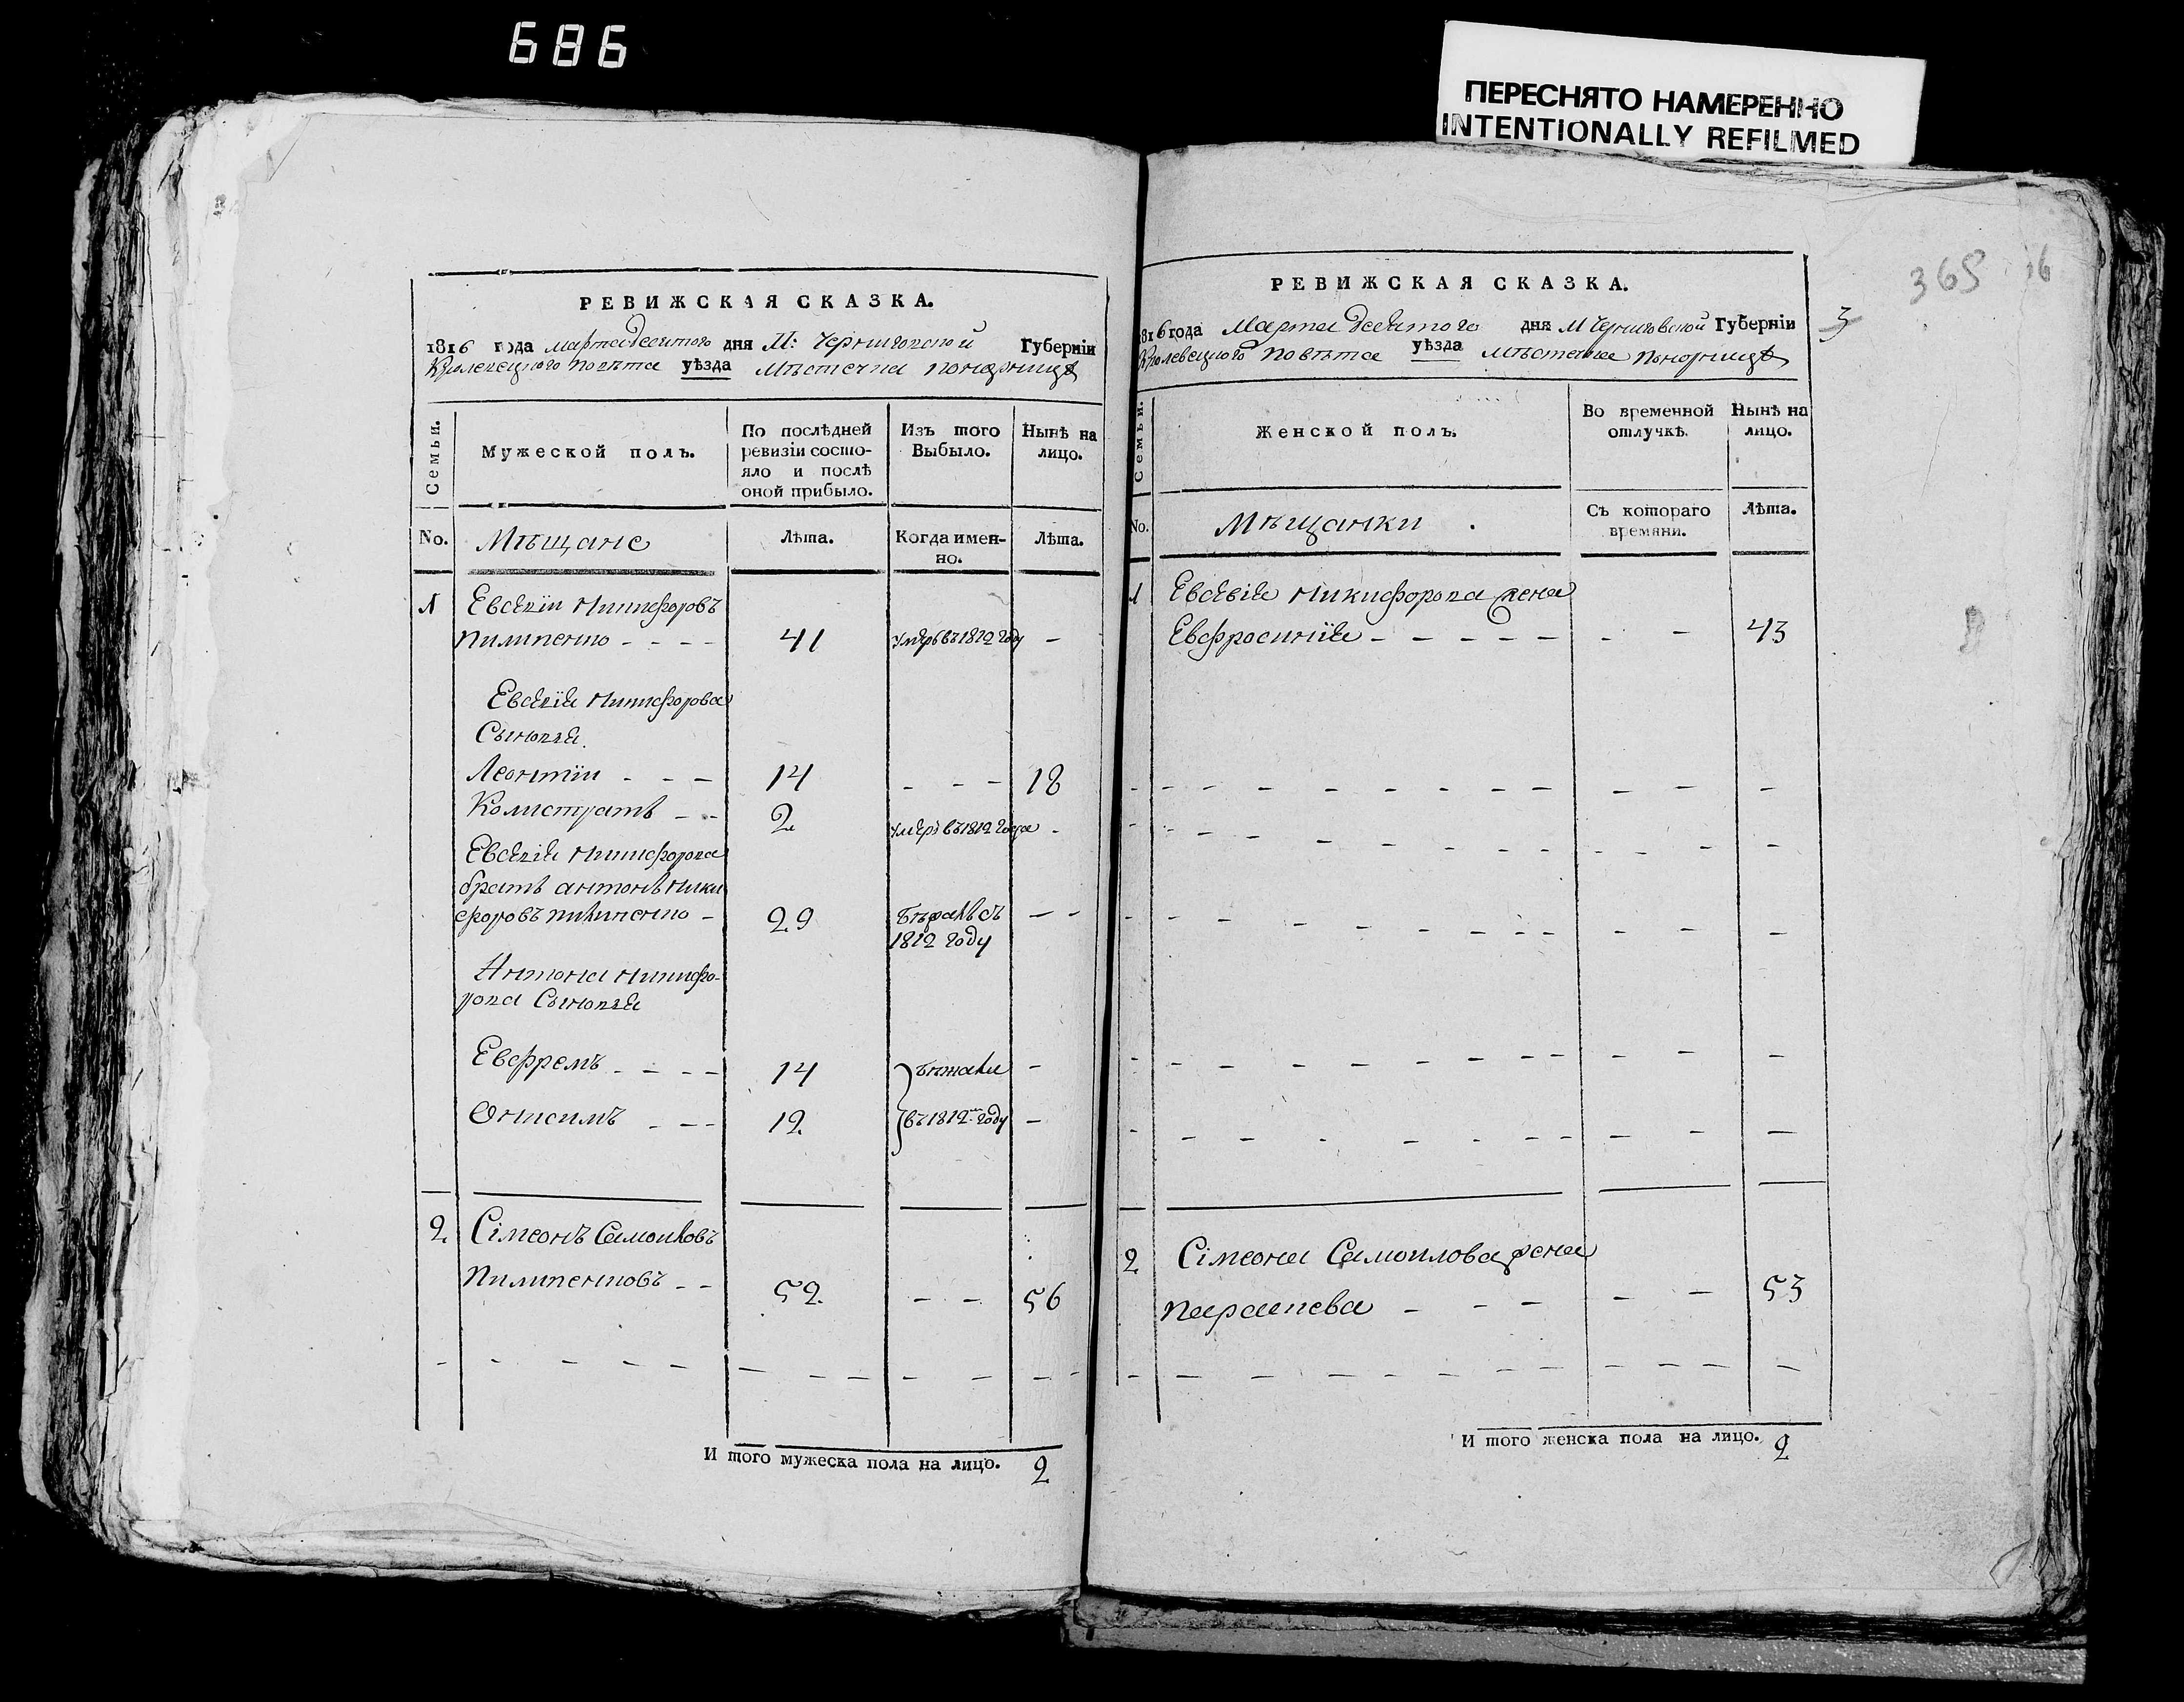 686
ПЕРЕСНЯТО НАМЕРЕННО
INTENTIONALLY REFILMED
365 16
3
РЕВИЖСКАЯ СКАЗКА.
1816 года марта десятого дня М: Черниговской Губерніи
Кролевецкого повѣта уѣзда мѣстечка понорницѣ
Семьи.
Мужеской полъ.
По послѣдней
ревизіи состо-
яло и послѣ
оной прибыло.
Изъ того
Выбыло.
Нынѣ на
лицо.
No.
Мѣщане
Лѣта.
Когда имен-
но.
Лѣта.
1 Евсѣвіи Никифоровъ
пилипенко - - - - 41 умеръ въ 1812 году -
Евсѣвія Никифорова
Сыновья.
Леонтіи - - - 14 - - - 18
Калистратъ - - 2 умеръ въ 1812 года -
Евсѣвія Никифорова
братъ антонъ Ники
форовъ пилипенко - 29 Бѣжалъ съ - -
1812 году
Антона Никифо-
рова Сыновья
Евфремъ - - - - 14 Бѣжали -
Онисимъ - - - 12 въ 1812 году -
2 Сімеонъ Самоиловъ
Пилипенковъ - - 52 - - 56
И того мужеска пола на лицо. 2
РЕВИЖСКАЯ СКАЗКА.
1816 года Марта десятого дня М Черниговской Губерніи
Кролевецкого повѣта уѣзда мѣстечка понорницѣ
Семьи.
Женской полъ.
Во временной
отлучкѣ.
Нынѣ на
лицо.
No.
Мѣщанки
Съ котораго
времяни.
Лѣта.
1 Евсѣвія Никифорова жена
Евфросинія - - - - - - - 43
2 Сімеона Самоилова жена
параскева - - - - - 53
И того женска пола на лицо. 2